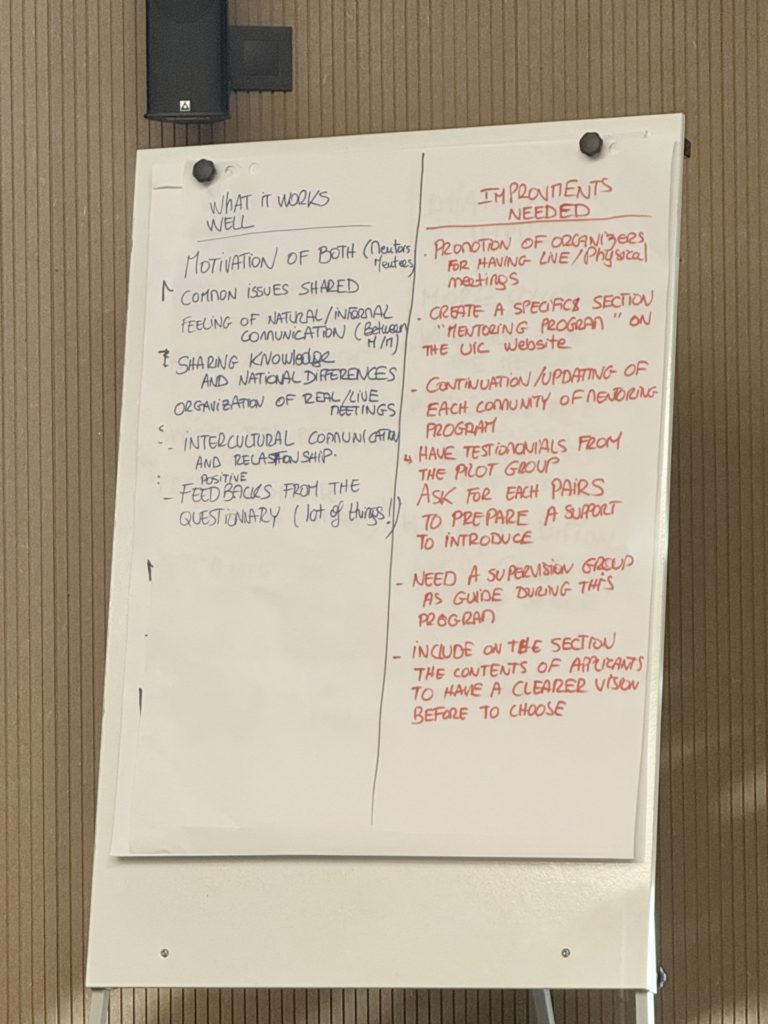 WHAT IT WORKS
WELL
MOTIVATION OF BOTH (Mentors
Mentees)
COMMON ISSUES SHARED
FEELING OF NATURAL/INFORMAL
COMUNICATION (Between
M/M)
SHARING KNOWLEDGE
AND NATIONAL DIFFERENCES
ORGANIZATION OF REAL/LIVE
MEETINGS
- INTERCULTURAL COMUNICATION
AND RELATIONSHIP.
POSITIVE
- FEEDBACKS FROM THE
QUESTIONARY (lot of things!)
IMPROVMENTS
NEEDED
. PROMOTION OF ORGANIZERS
FOR HAVING LIVE/Physical
meetings
- CREATE A SPECIFIC SECTION
"MENTORING PROGRAM" ON
THE UIC WebSITE
- CONTINUATION/UPDATING OF
EACH COMUNITY OF MENTORING
PROGRAM
HAVE TESTIMONIALS FROM
THE PILOT GROUP
ASK FOR EACH PAIRS
TO PREPARE A SUPPORT
TO INTRODUCE
- NEED A SUPERVISION GROUP
AS GUIDE DURING THIS
PROGRAM
- INCLUDE ON THE SECTION
THE CONTENTS OF APPLICANTS
TO HAVE A CLEARER VISION
BEFORE TO CHOOSE